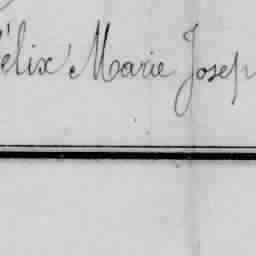 élix Marie Josep